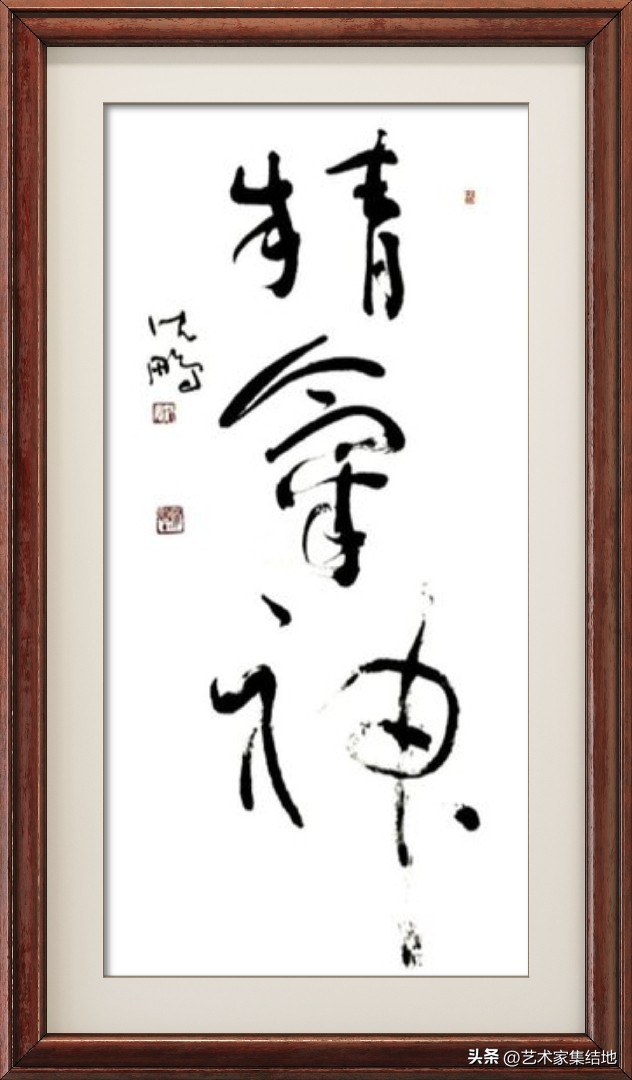 精氣神
沈鹏
头条 @艺术家集结地